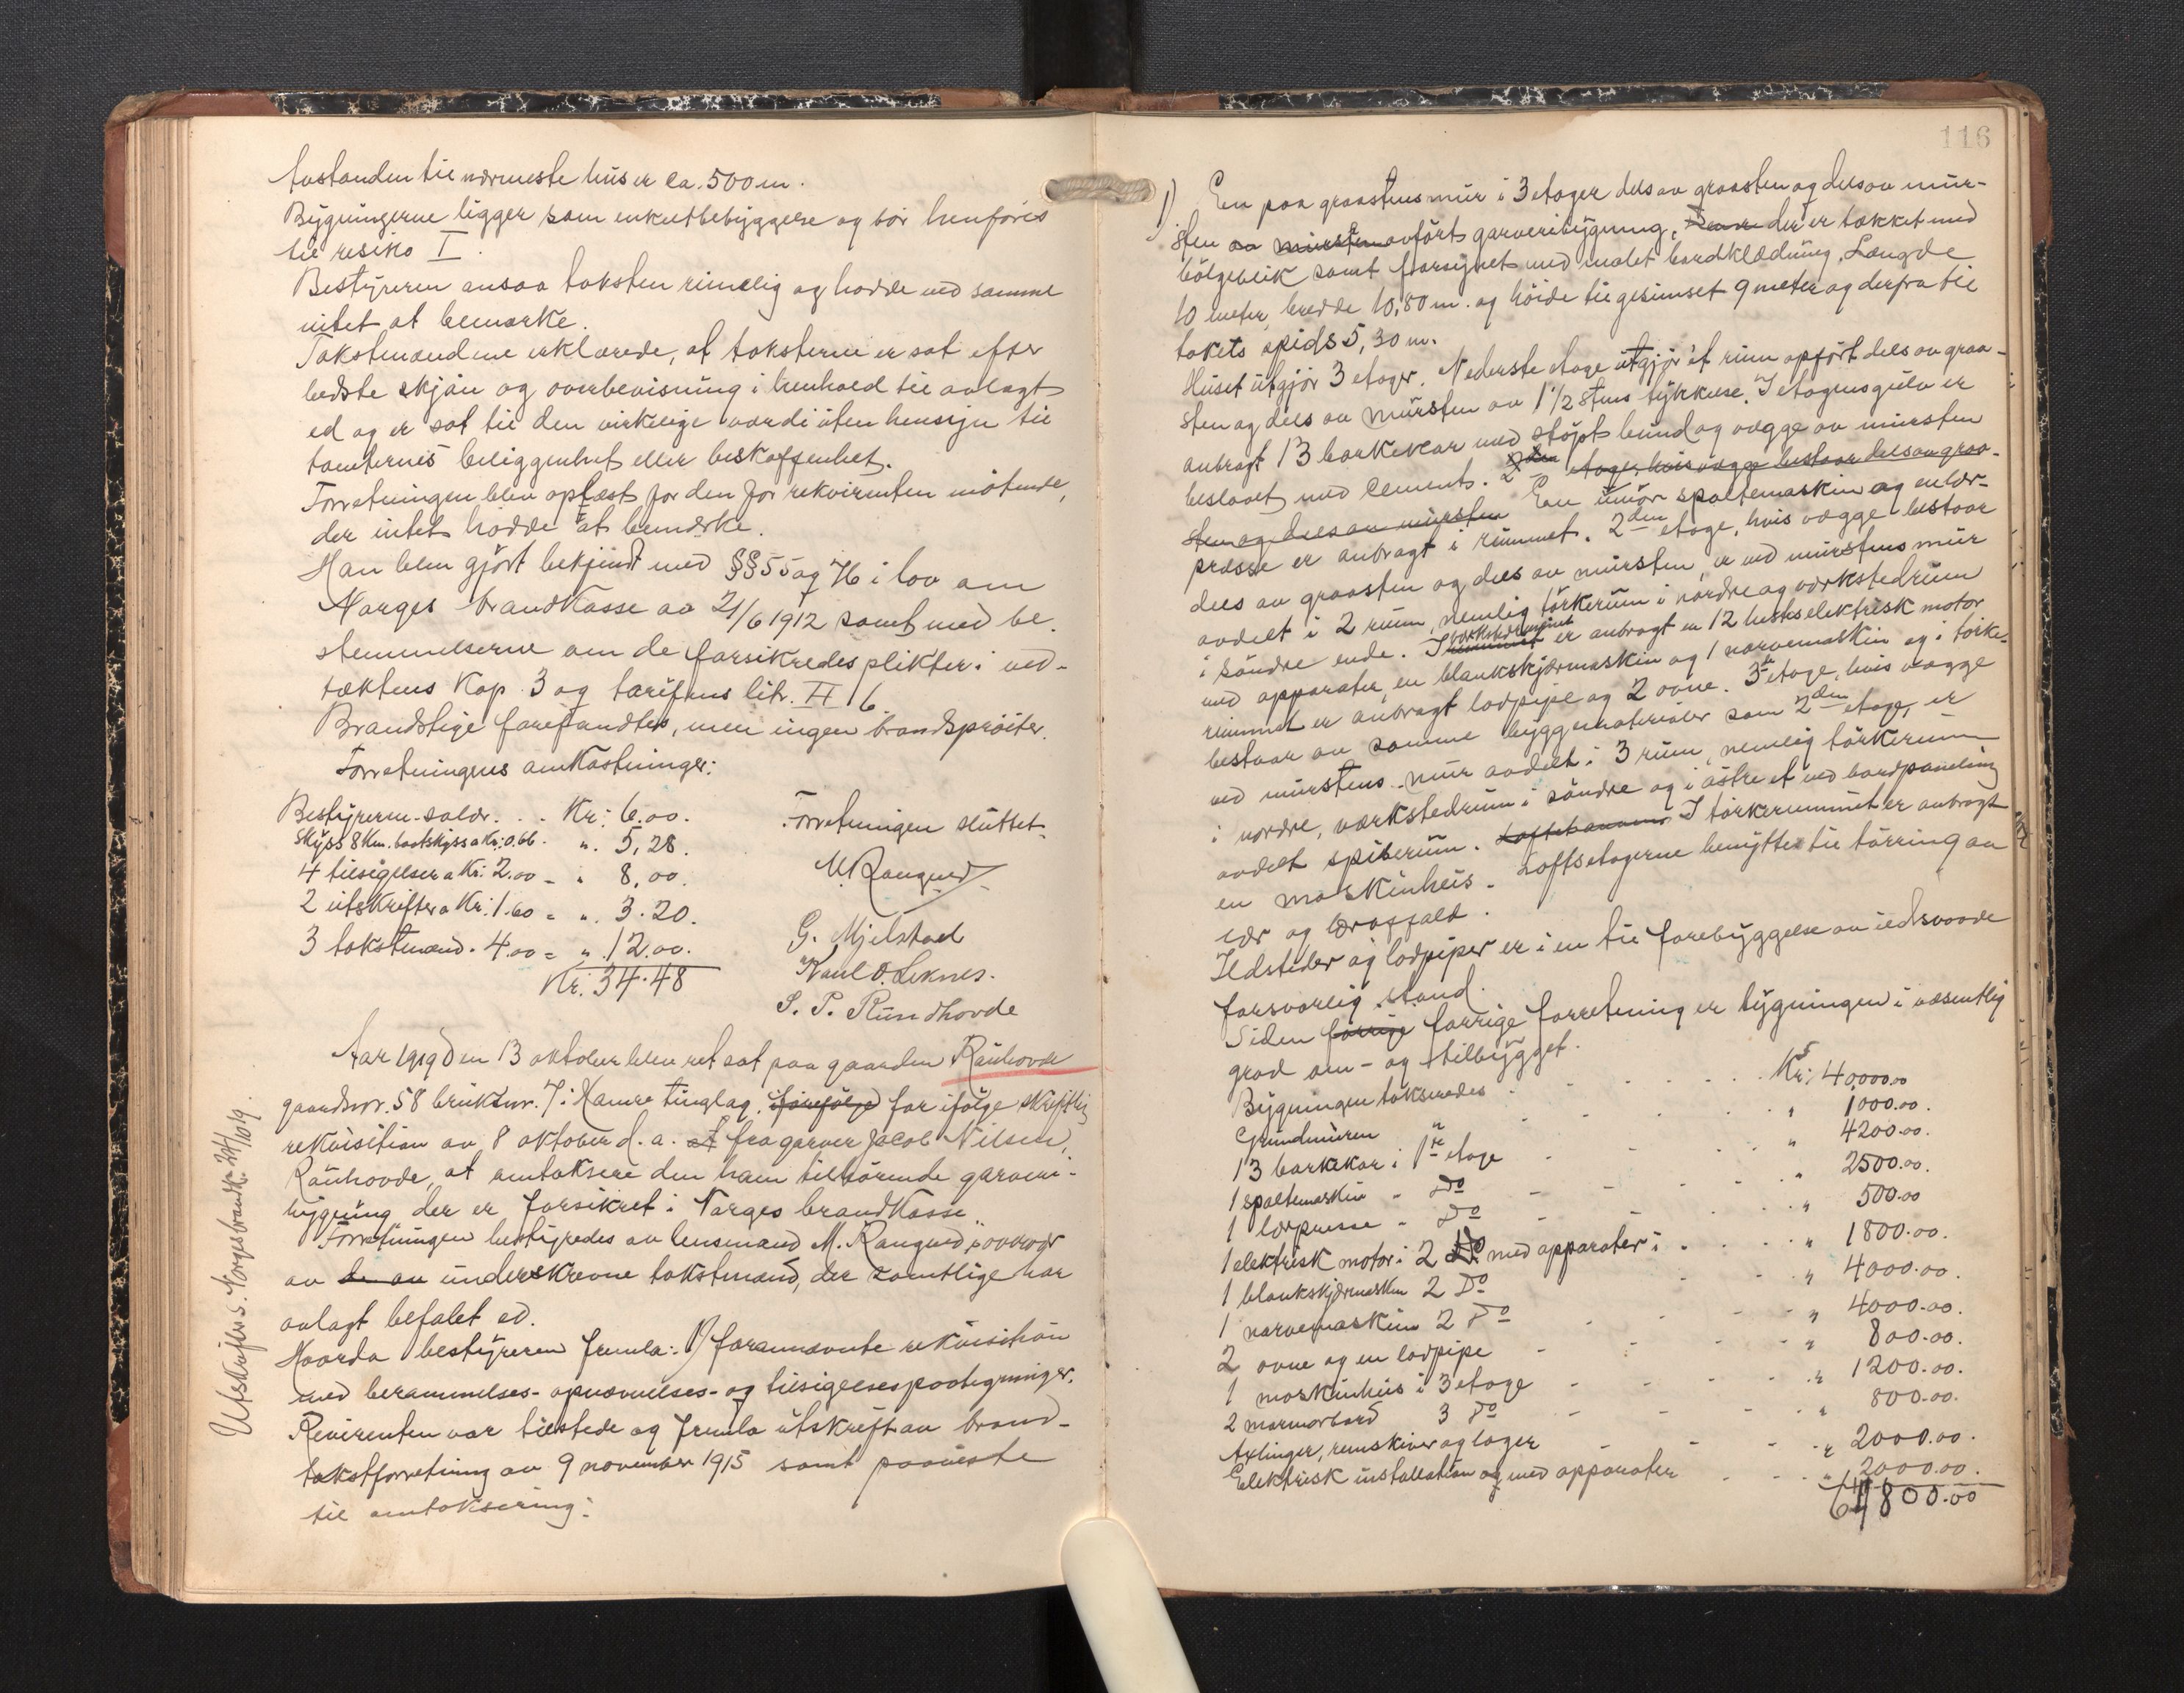 Avstanden til nærmeste hus er ca. 500 m.
Bygningerne ligger som enkeltbebyggelse og bör henföres
til resiko I.
Bestyreren ansaa taksten rimelig og hadde ved samme
intet at bemærke.
Takstmændene erklærede, at taksterne er sat efter
bedste skjön og overbevisning i henhold til avlagt
ed og er sat til den virkelige værdi uten hensyn til
tomternes beliggenhet eller beskaffenhet.
Forretningen blev oplæst for den for rekvirenten mötende,
der intet hadde at bemærke.
Han blev gjört bekjendt med §§ 55 og 76 i lov om
Norges Brandkasse av 21/6 1912 samt med be-
stemmelserne om de forsikredes plikter i ved-
tæktens kap. 3 og tarifens litr. H 6.
Brandstige forefandtes, men ingen brandspröiter.
Forretningens omkostninger:
Bestyreren salær . . . Kr: 6.00.
Skyss 8 Km. baatskyss a Kr: 0.66 . „ 5,28.
4 tilsigelser a Kr: 2.00 - „ 8,00.
2 utskrifter a Kr: 1.60 = „ 3.20.
3 takstmænd . 4.00 = „ 12.00.
Kr. 34.48
Forretningen sluttet.
M. Rangned
G. Mjelstad
Karl O. Leknes.
S. P. Rundhovde
Aar 1919 den 13 oktober blev ret sat paa gaarden Rauhovde
gaardsnr. 58 bruksnr. 7 i Hamre tinglag, iförefölge for ifölge skriftlig
rekvisition av 8 oktober d. a. at fra garver Jacob Nilsen,
Rauhovde, at omtaksere den ham tilhörende garveri-
bygning der er forsikret i Norges brandkasse
Forretningen bestyredes av lensmand M. Rangned og overvær
av de av underskrevne takstmænd, der samtlige har
avlagt befalet ed.
Hvorda bestyreren fremla: 1) forannævnte rekvisition
med berammelses- opnævnelses- og tilsigelsespaategninger.
Revirenten var tilstede og fremla utskrift av brand-
takstforretning av 9 november 1915 samt paaviste
til omtaksering:
Utskrifter s. Norges brandk. 24/10 19.
116
1) En paa graastensmur i 3 etager dels av graasten og dels av mur-
sten av mursten opfört garveribygning, der er tækket med
bölgeblik samt forsynet med malet bordklædning. Længde
10 meter, bredde 10,80 m. og höide til gesimset 9 meter og derfra til
takets spids 5,30 m.
Huset utgjör 3 etager. Nederste etage utgjör et rum opfört dels av graa-
sten og dels av mursten av 1 1/2 stens tykkelse. I etagens gulv er
anbragt 13 barkekar med stöpt bund og vægge av mursten
beslaaet med cement. 2den etage, hvis vægge bestaar dels av graa-
sten og dels av mursten En union spaltemaskin og en lær-
presse er anbragt i rummet. 2den etage, hvis vægge bestaar
dels av graasten og dels av mursten, er ved murstens mur
avdelt i 2 rum, nemlig törkerum i nordre og verkstedrum
i söndre ende. I verkstedrummet er anbragt en 12 hestes elektrisk motor
med apparater, en blankskjærmaskin og 1 narvemaskin og i törke-
rummet er anbragt lodpipe og 2 ovne. 3die etage, hvis vægge
bestaar av samme byggematerialer som 2den etage, er
ved murstens mur avdelt i 3 rum, nemlig törkerum
i nordre, værkstedrum i söndre og i östre et ved bordpaneling
avdelt spiserum. I törkerummet er anbragt
en maskinheis. Loftsetagerne benyttes til törring av
lær og læraffald.
Ildsteder og lodpiper er i en til forebyggelse av ildsvaade
forsvarlig stand.
Siden forrige forrige forretning er bygningen i væsentlig
grad om- og tilbygget.
Bygningen takseredes . . . . Kr: 40000.00
Grundmuren „ - - - „ 1000.00.
13 barkekar i 1ste etage - - - „ 4200.00.
1 spaltemaskin - Do - - - „ 2500.00.
1 lærpresse - Do - - - „ 500.00
1 elektrisk motor i 2 Do med apparater i . . . „ 1800.00.
1 blankskjærmaskin 2 Do - - „ 4000.00.
1 narvemaskin 2 Do - - - „ 4000.00.
2 ovne og en lodpipe - - - „ 800.00.
1 maskinheis i 3 etage - - - „ 1200.00.
2 marmorbord 3 Do - - - „ 800.00.
Axlinger, remskiver og lager - - - „ 2000.00.
Elektrisk installation og med apparater - - - „ 2000.00.
64800.00